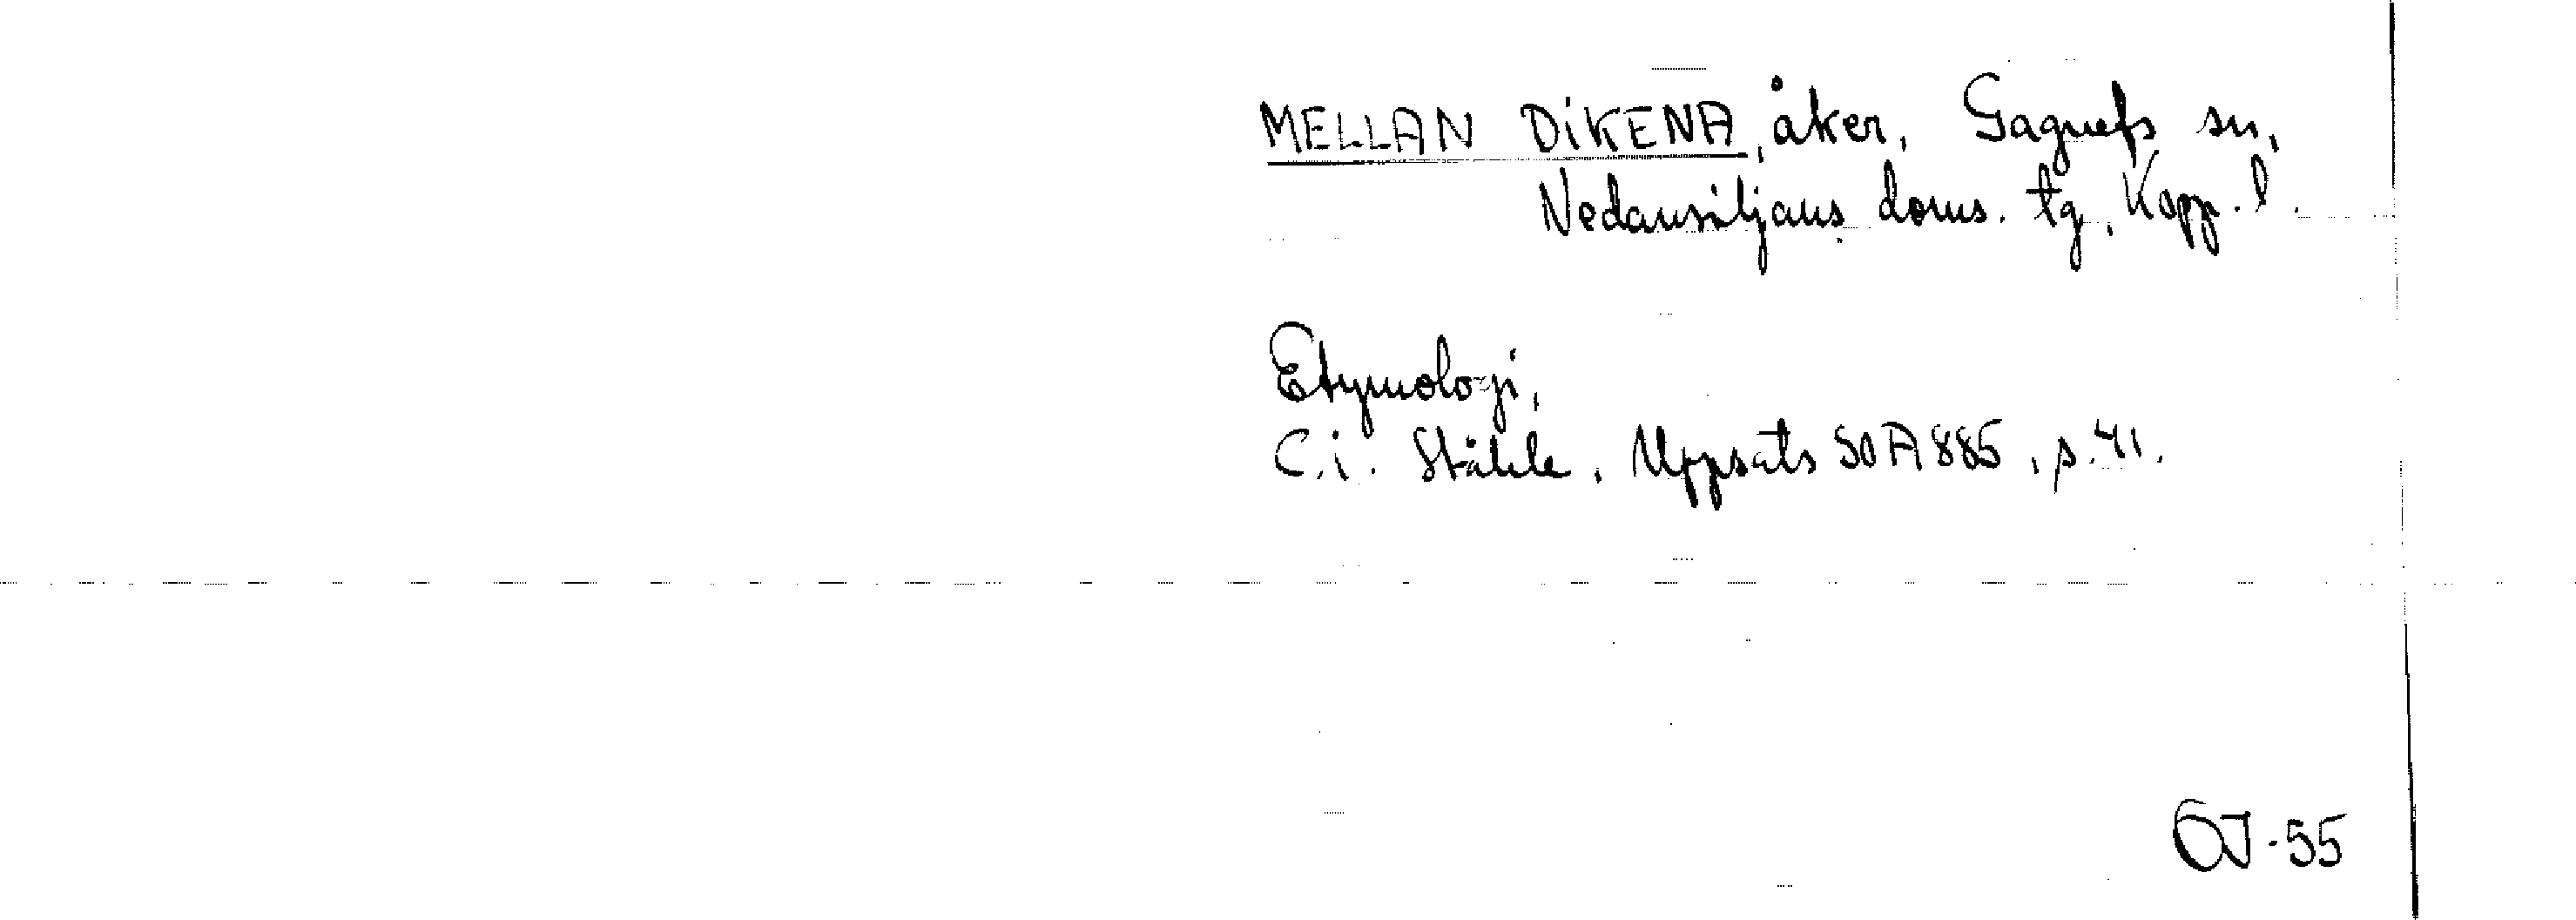 MELLAN DIKENA, åker, Gagnefs sn,
Nedansiljans doms. tg, Kopp. l.
Etymologi,
C. i. Ståhle, Uppsats SOA 885, s. 41.
OJ-55